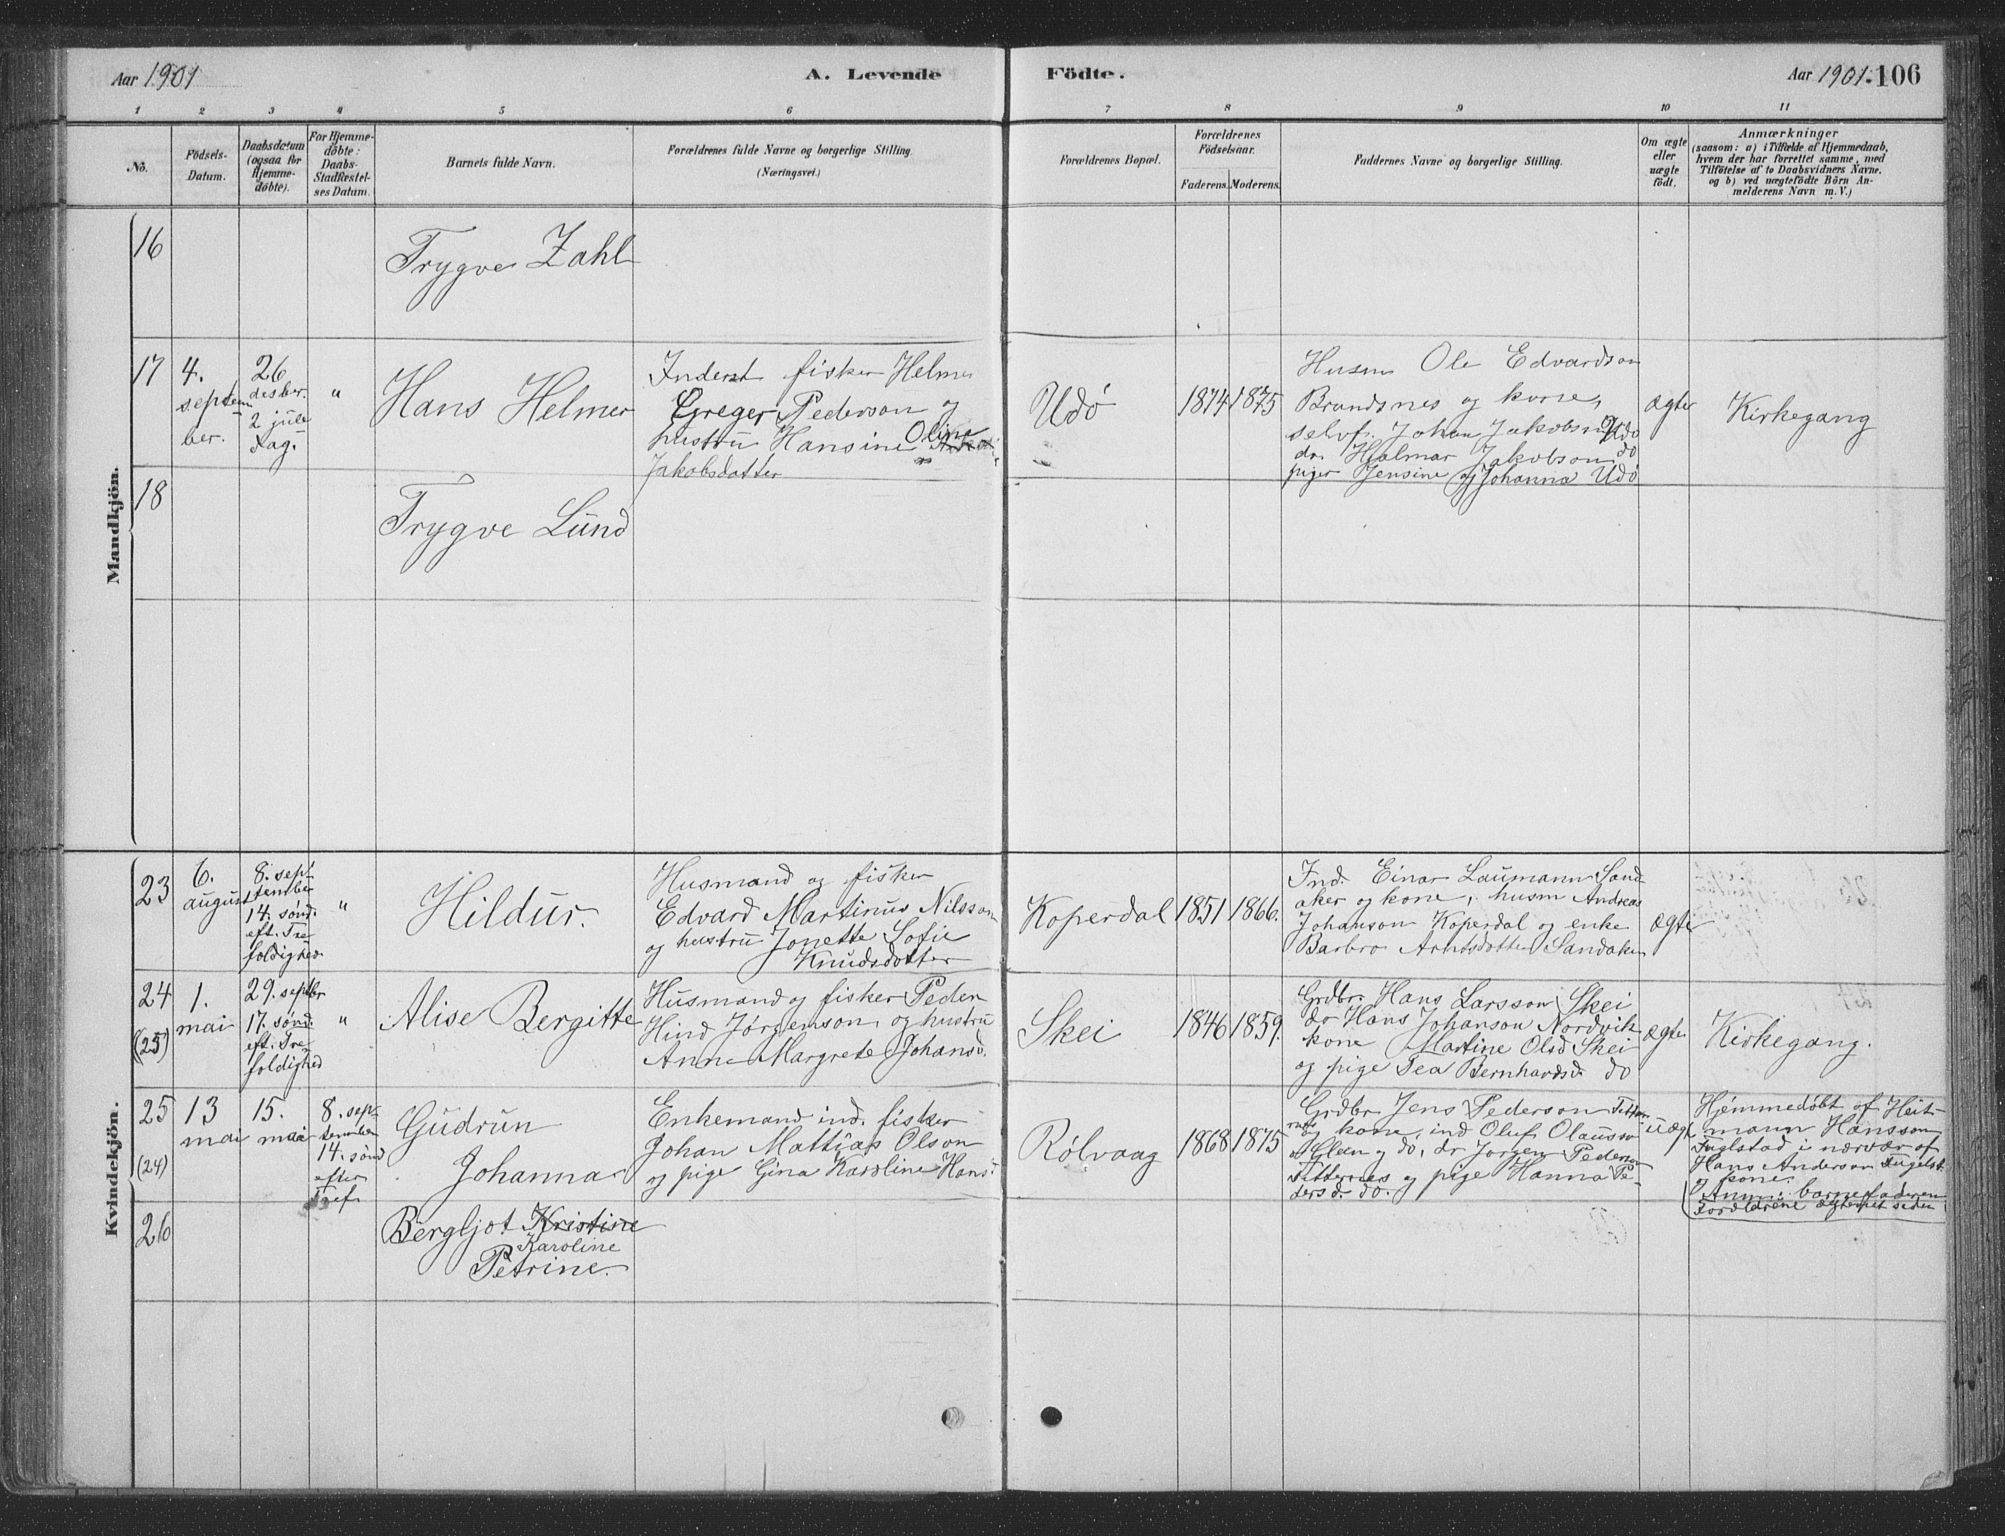 Aar 1901
A. Levende
Födte.
Aar 1901. 106
1 2 3 4 5 6 7 8 9 10 11
No.
Födsels-
Datum.
Daabsdatum
(ogsaa for
Hjemme-
døbte).
For Hjemme-
døbte:
Daabs-
Stadfestel-
ses Datum.
Barnets fulde Navn.
Forældrenes fulde Navne og borgerlige Stilling.
(Næringsvei.)
Forældrenes Bopæl.
Forældrenes
Födselsaar.
Faderens. Moderens.
Faddernes Navne og borgerlige Stilling.
Om ægte
eller
uægte
født.
Anmærkninger
(saasom: a) i Tilfælde af Hjemmedaab,
hvem der har forrettet samme, med
Tilföielse af to Daabsvidners Navne.
og b) ved uægtefödte Börn An-
melderens Navn m. V.)
Mandkjön.
16
Trygve Zahl
17
4.
septem
ber.
26
desber.
2 jule
dag.
"
Hans Helmer
Inderst fisker Helmer
Greger Pederson og
hustru Hansine Oline
Jakobsdatter
Udö
1874 1875
Husm Ole Edvardson
Brundsnes og kone,
selvf. Johan Jakobson Udö
dr. Hjalmar Jakobson do
piger Jensine og Johanna Udö
ægte
Kirkegang
18
Trygve Lund
Kvindekjön.
23
6.
august
8. sep-
tember
14. sønd.
eft. Tre
foldighed
"
Hildur.
Husmand og fisker
Edvard Martinus Nilsson
og hustru Jonette Sofie
Knudsdotter
Koperdal
1851 1866.
Ind. Einar Laumann Sand
aker og kone, husm Andreas
Johanson Koperdal og enke
Barbro Arntsdotter Sandaker
ægte
24
(25)
1.
mai
29. septbr
17. sønd.
eft. Tre
foldighed
"
Alise Bergitte
Husmand og fisker Peder
Hind Jørgenson og hustru
Anne Margrete Johansd.
Skei
1846 1859.
Grdbr. Hans Larsson Skei
dr Hans Johanson Nordvik
kone Martine Olsd Skei
og pige Tea Bernhardsd. do
ægte
Kirkegang.
25
(24)
13
mai
15.
mai
8. sep-
tember
14. sønd
efter
Tref.
Gudrun
Johanna
Enkemand ind. fisker
Johan Mattias Olson
og pige Gina Karoline Hansd
Rølvaag
1868 1875
Grdbr Jens Pederson Titter
nes og kone, ind Oluf Olausson
Glein og do, dr Jorgen Pederson
Titternes og pige Hanna Pe-
dersd. do.
uægte
Hjemmedøbt af Heit-
mann Hansson
Fuglstad i nærvær af
Hans Anderson Fugelst.
kone.
Anm: barnefaderen
Forældrene ægteviet siden
26
Bergljot Kristine
Karoline
Petrine.